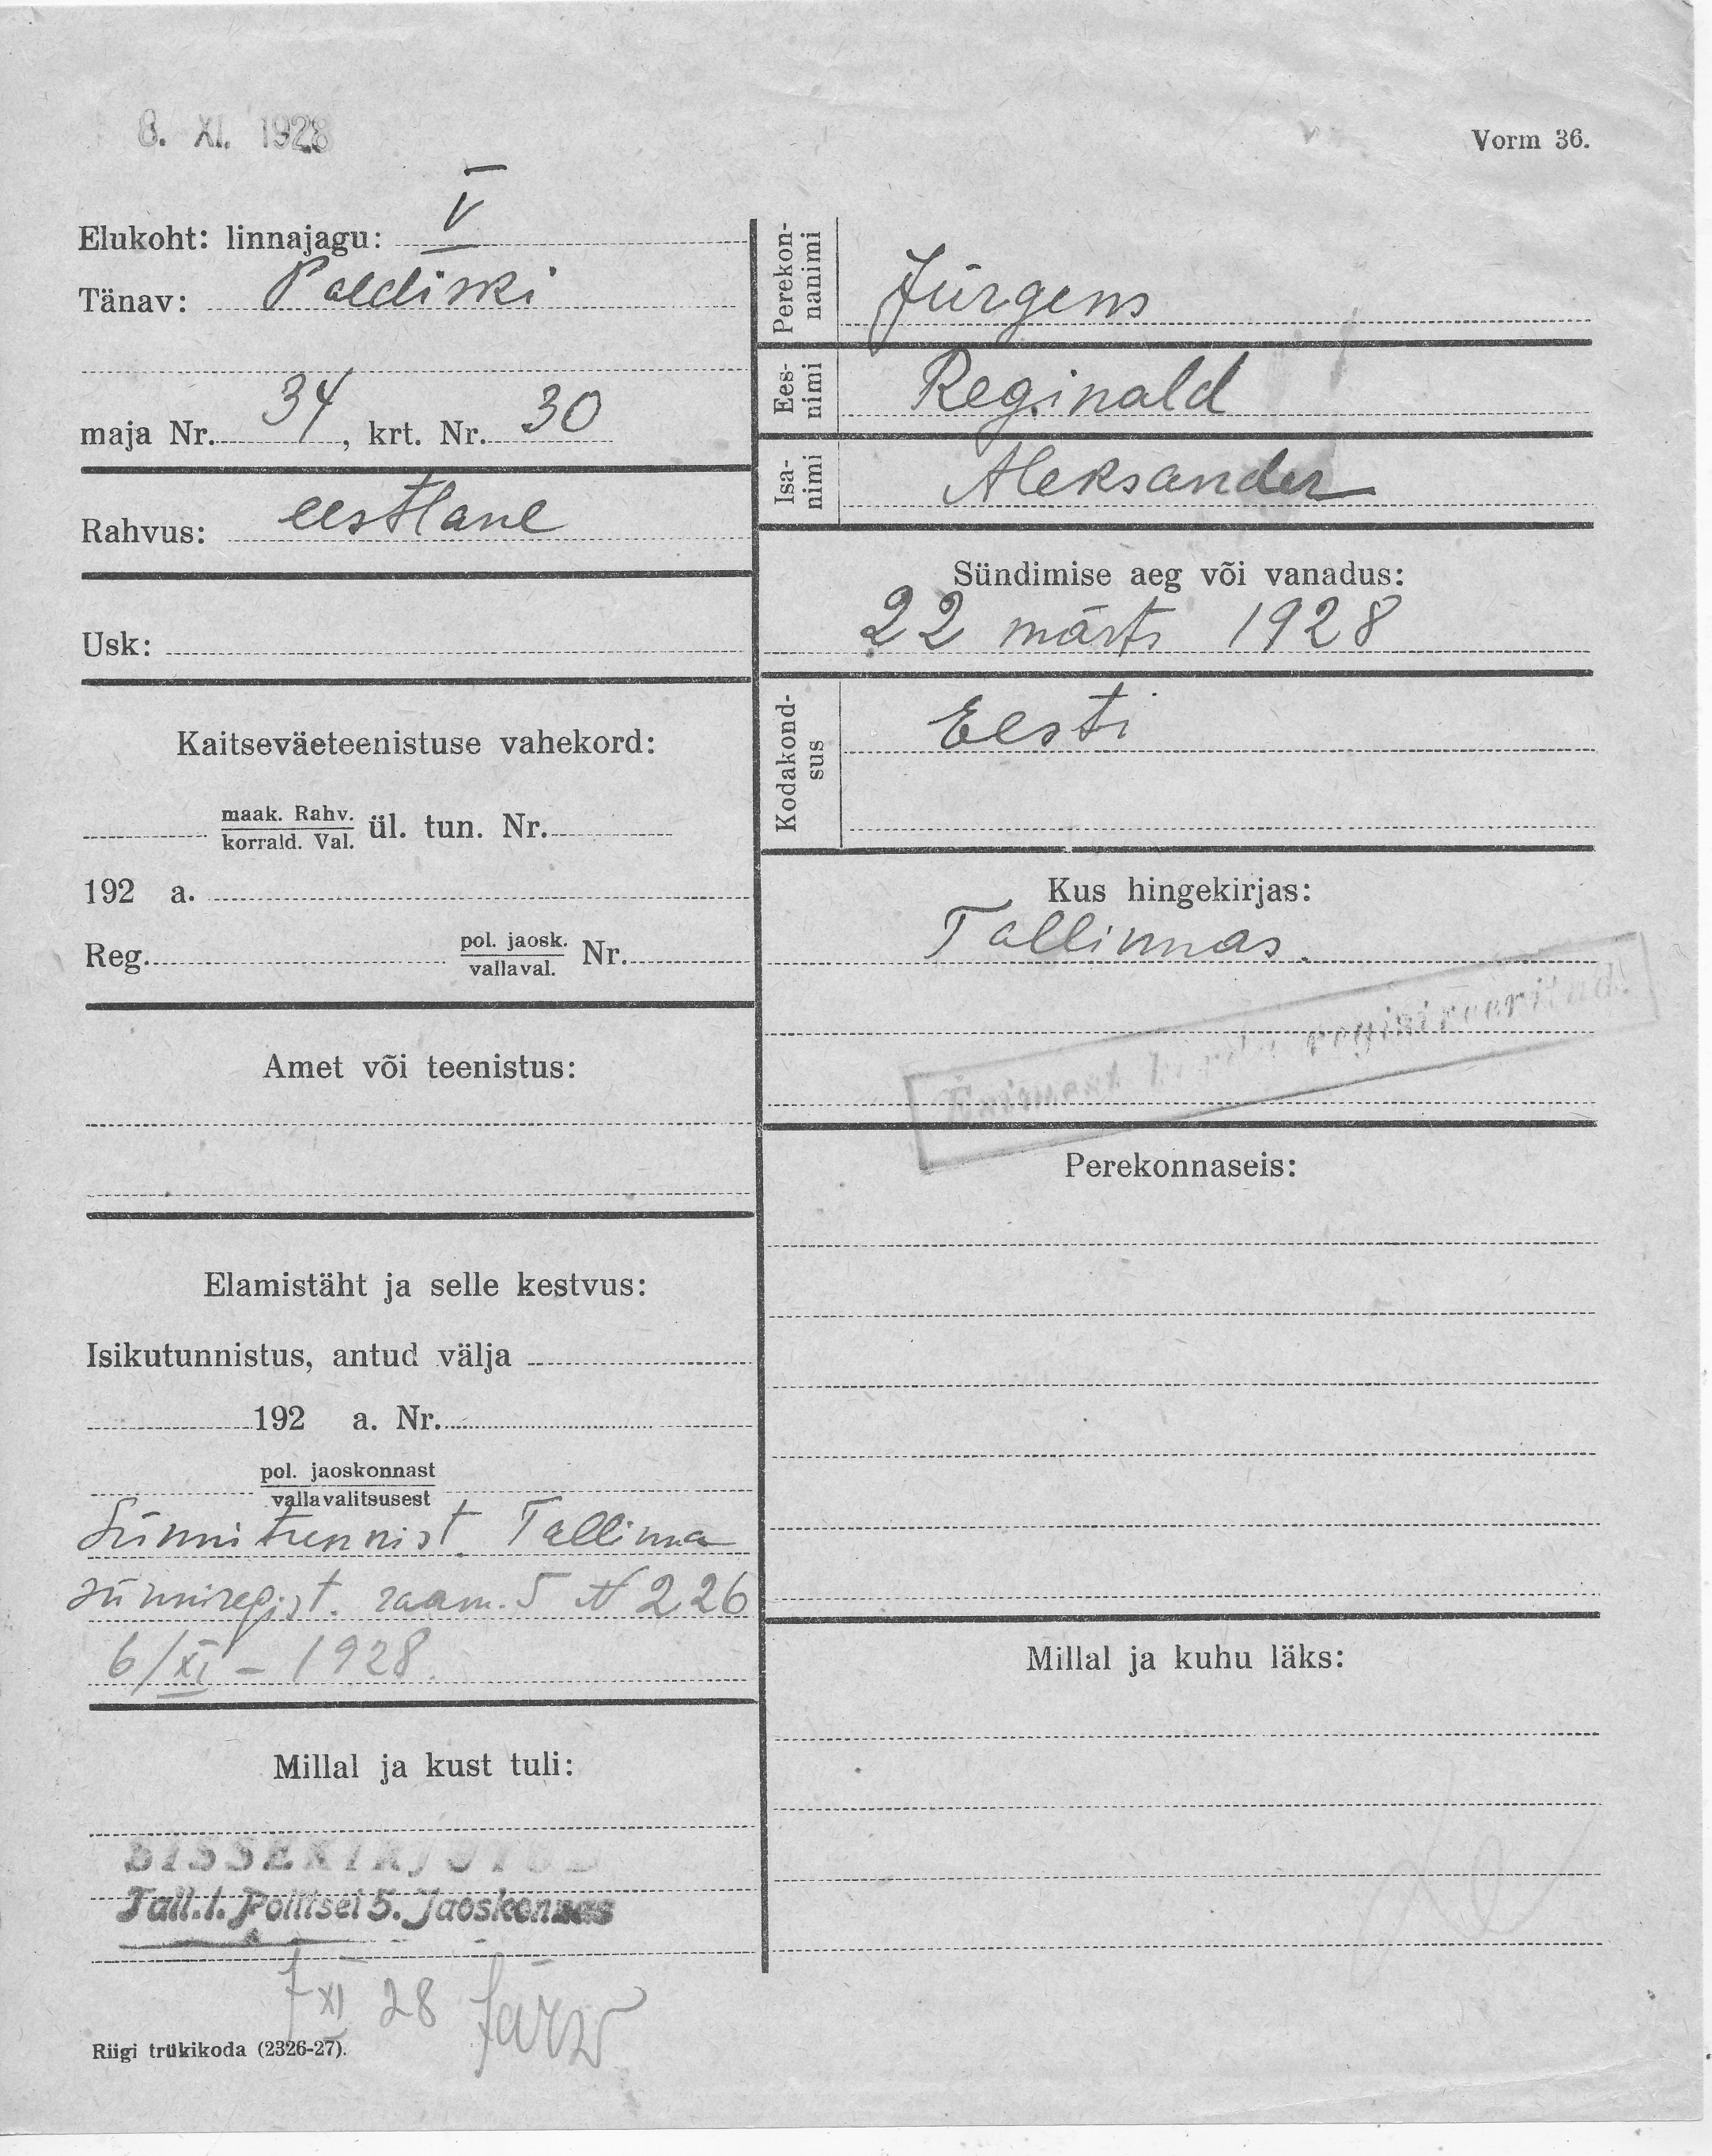 8. XI. 1928
Vorm 36.
Elukoht: linnajagu: V
Tänav: Paldiski
maja Nr. 34, krt. Nr. 30
Rahvus: eestlane
Usk:
Kaitseväeteenistuse vahekord:
maak. Rahv.
korrald. Val. ül. tun. Nr.
192 a.
Reg. pol. jaosk.
vallaval. Nr.
Amet või teenistus:
Elamistäht ja selle kestvus:
Isikutunnistus, antud välja
192 a. Nr.
pol. jaoskonnast
vallavalitsusest
Sünnitunnist. Tallinna
sünniregist. raam. 5 N 226
6/XI – 1928.
Millal ja kust tuli:
SISSEKIRJUTUD
Tall.l. Politsei 5. Jaoskonnas
7 XI 28 Järw
Riigi trükikoda (2326-27).
Perekon-
nanimi
Jürgens
Ees-
nimi
Reginald
Isa-
nimi
Aleksander
Sündimise aeg või vanadus:
22 märts 1928
Kodakond-
sus
Eesti
Kus hingekirjas:
Tallinnas.
registreeritud!
Perekonnaseis:
Millal ja kuhu läks: